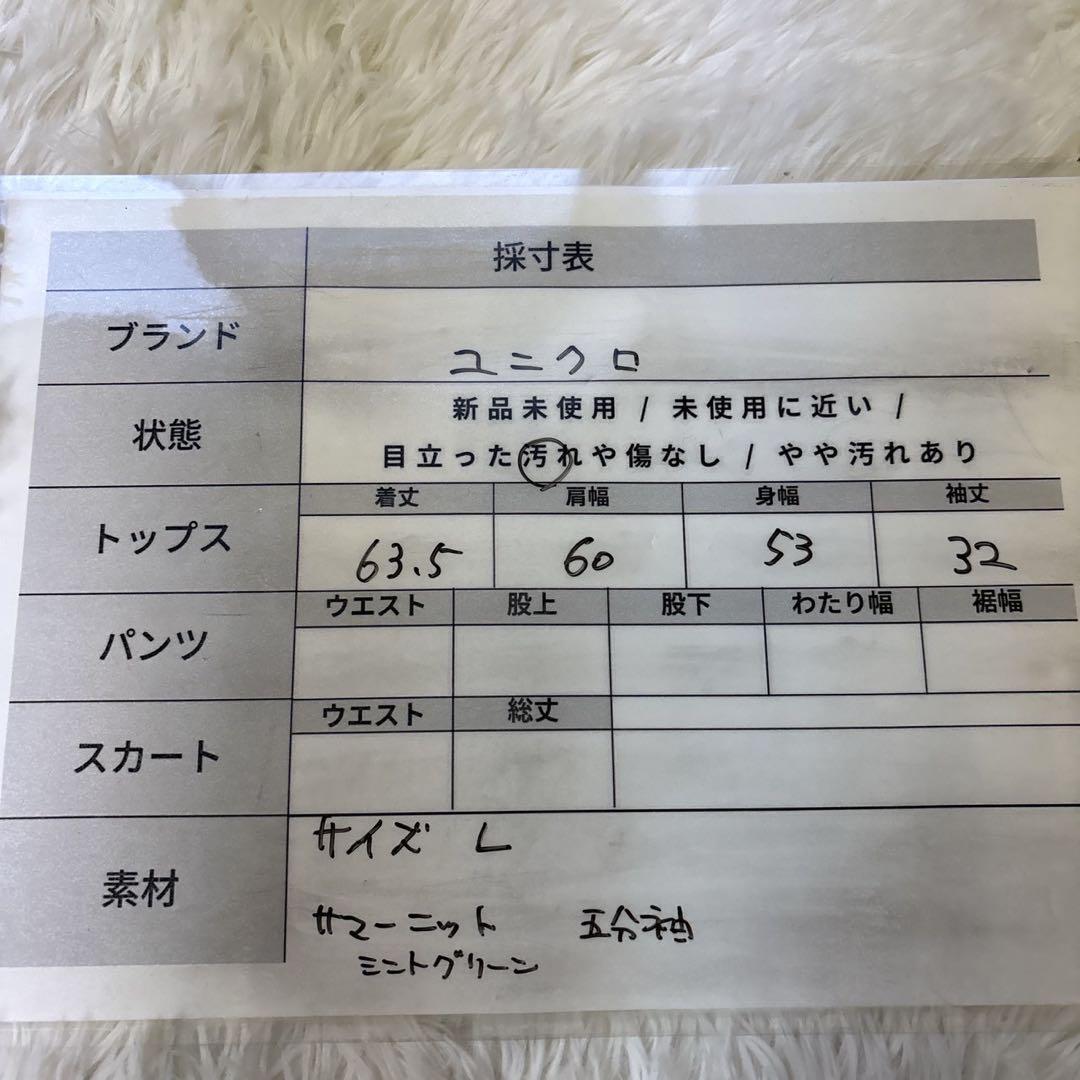 採寸表
ブランド
ユニクロ
状態
新品未使用 / 未使用に近い /
目立った汚れや傷なし / やや汚れあり
トップス
着丈 肩幅 身幅 袖丈
63.5 60 53 32
パンツ
ウエスト 股上 股下 わたり幅 裾幅
スカート
ウエスト 総丈
素材
サイズ L
サマーニット 五分袖
ミントグリーン